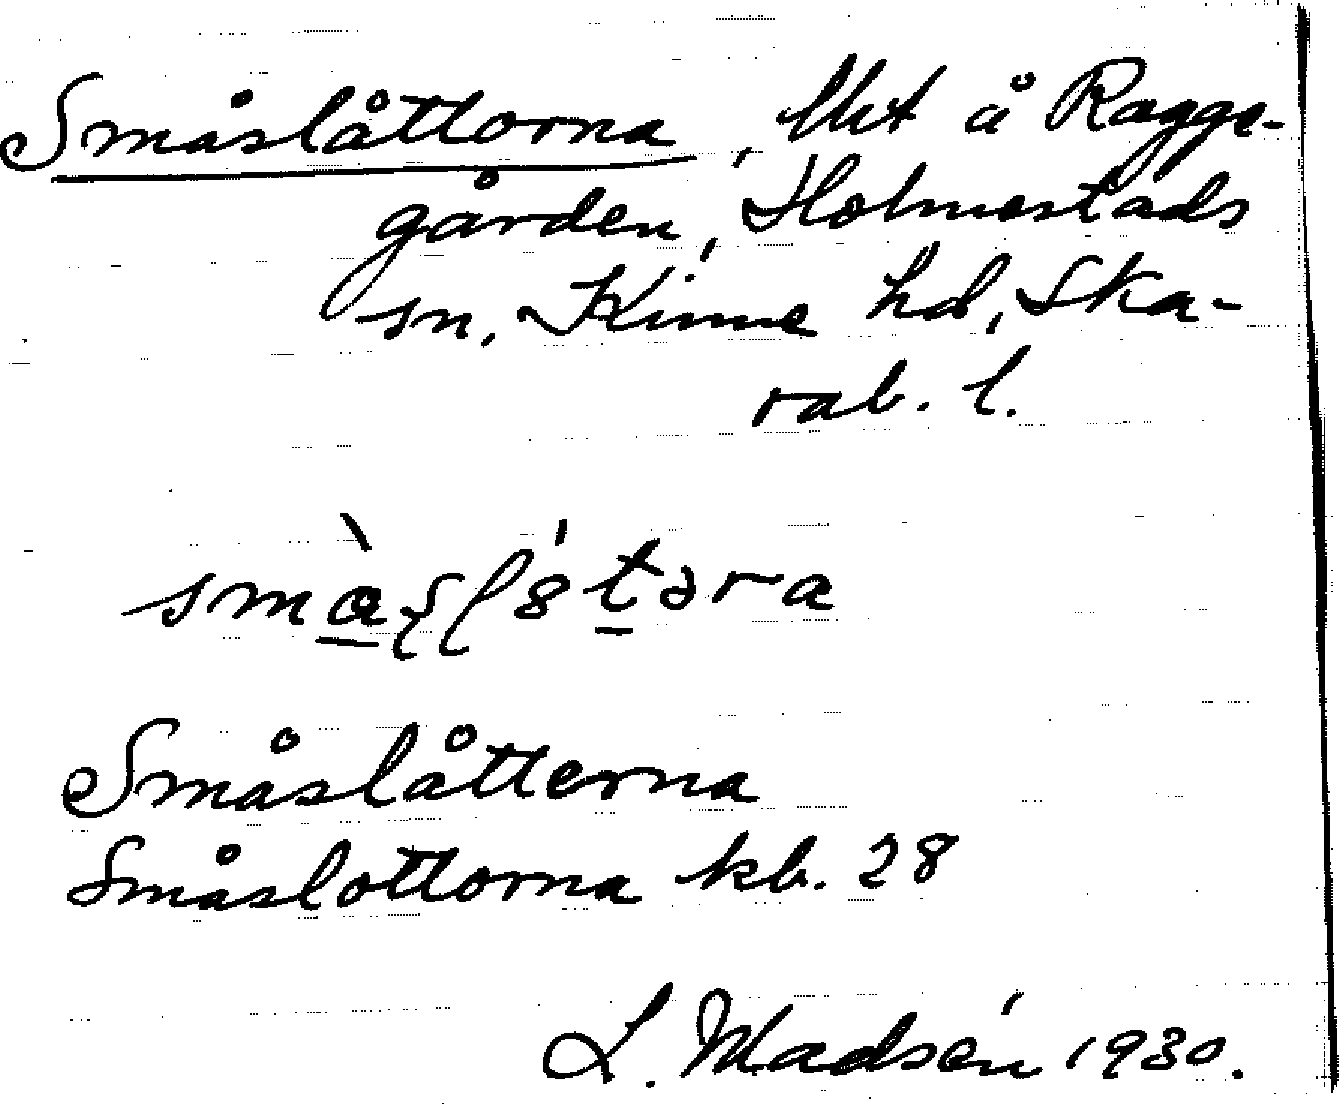 Småslåttorna, Mst å Ragge-
gården, Holmestads
sn, Kinne hd, Ska-
rab. l.
Småslåtterna
Småslottorna kb. 28
L. Madsén 1930.